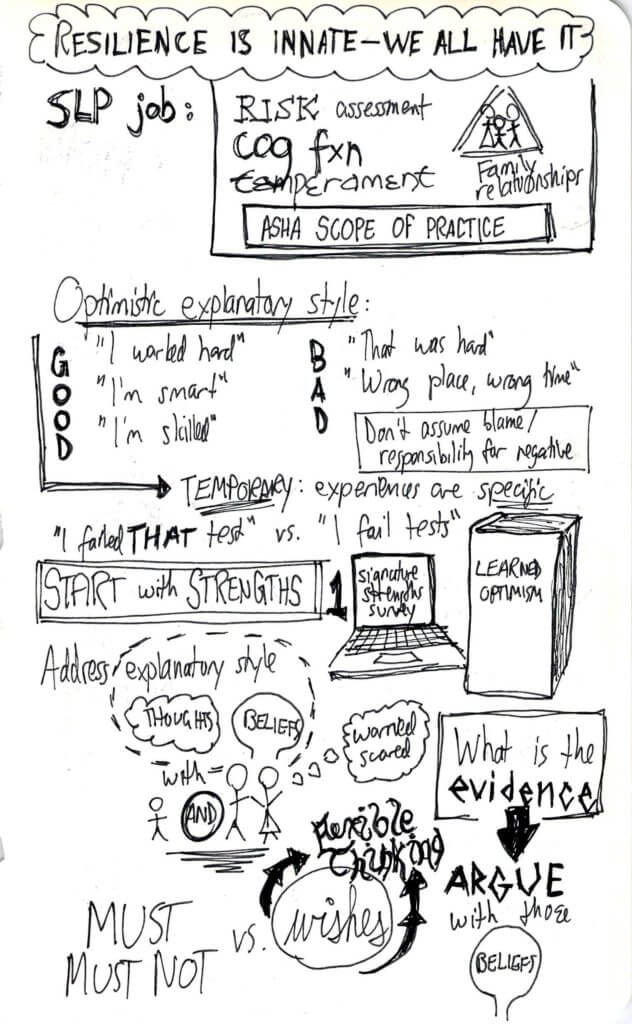 RESILIENCE IS INNATE—WE ALL HAVE IT
SLP job:
RISK assessment
cog fxn
temperament
Family
relationships
ASHA SCOPE OF PRACTICE
Optimistic explanatory style:
GOOD
"I worked hard"
"I'm smart"
"I'm skilled"
BAD
"That was hard"
"Wrong place, wrong time"
Don't assume blame/
responsibility for negative
TEMPORARY: experiences are specific
"I failed THAT test" vs. "I fail tests"
START with STRENGTHS
1
signature
strengths
survey
LEARNED
OPTIMISM
Address explanatory style
THOUGHTS
BELIEFS
worried
scared
with =
AND
What is the
evidence
flexible
thinking
ARGUE
with those
BELIEFS
MUST
MUST NOT
vs.
wishes